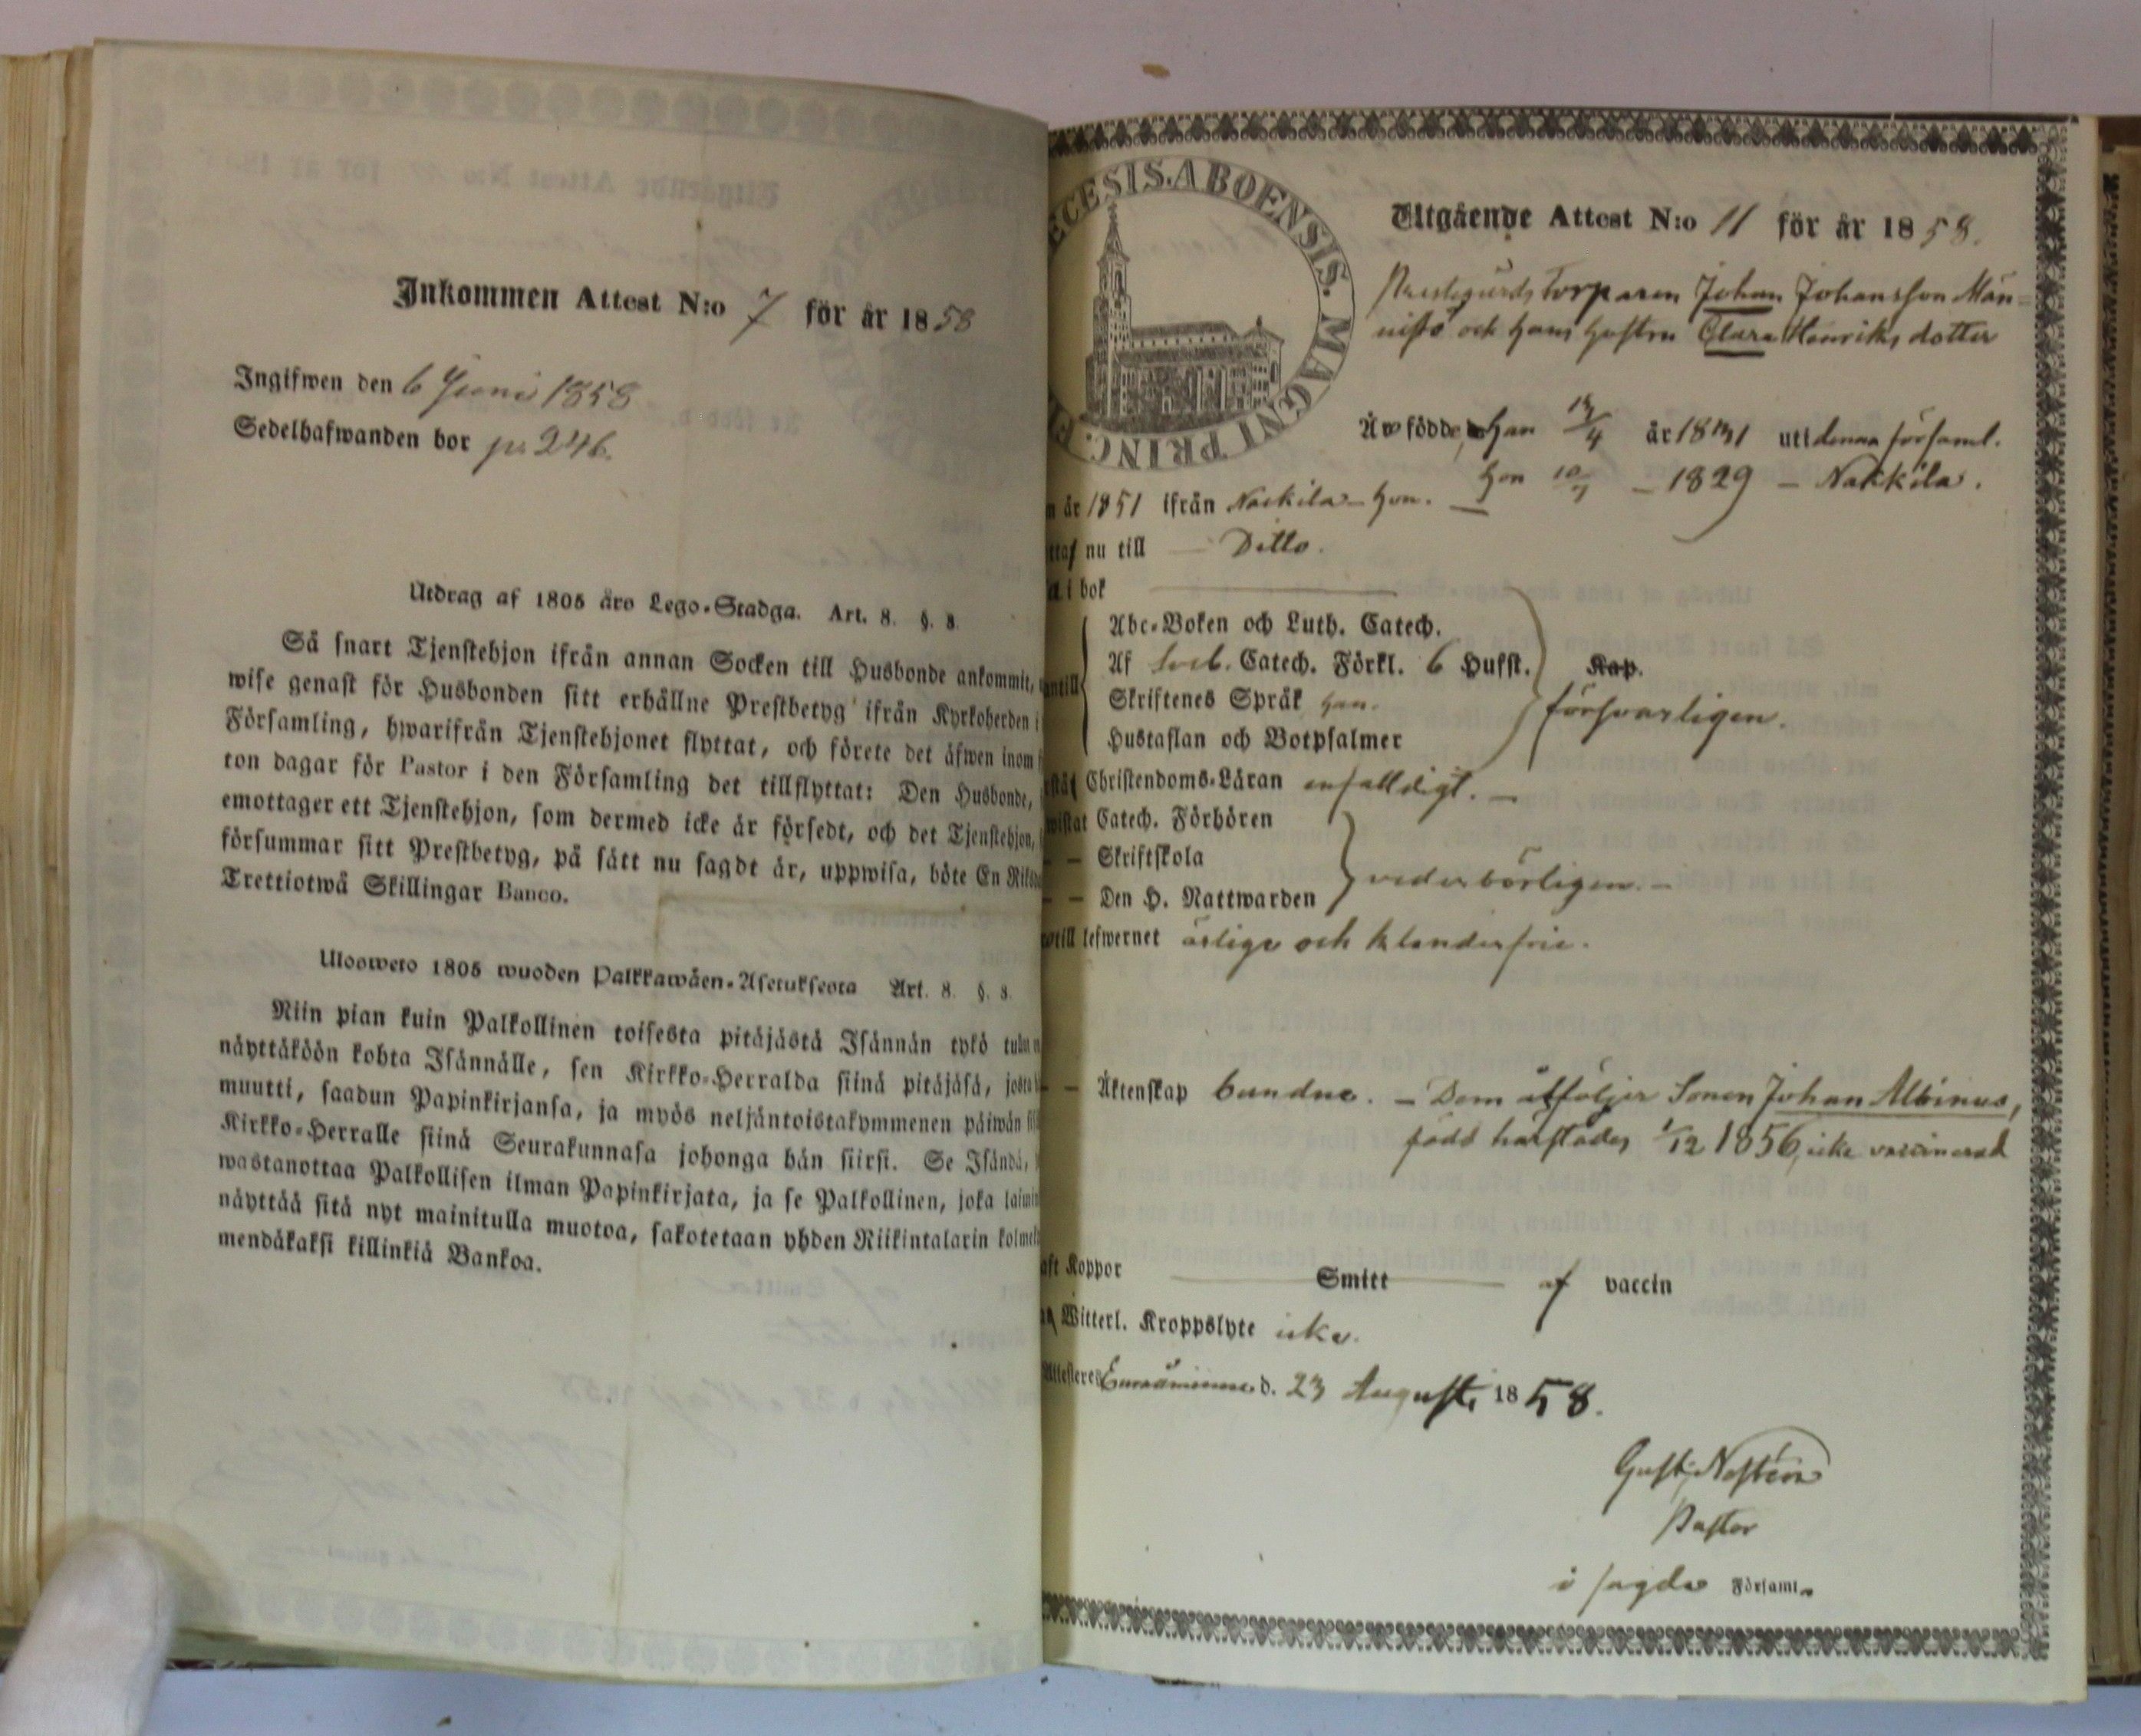 Inkommen Attest N:o 7 för år 1858
Ingifwen den 6 Juni 1858
Sedelhafwanden bor p. 246.
Utdrag af 1805 års Lego-Stadga. Art. 8. §. 8.
Så snart Tjenstehjon ifrån annan Socken till Husbonde ankommit,
wise genast för Husbonden sitt erhållne Prestbetyg ifrån Kyrkoherden i
Församling, hwarifrån Tjenstehjonet flyttat, och förete det äfwen inom
ton dagar för Pastor i den Församling det tillflyttat: Den Husbonde,
emottager ett Tjenstehjon, som dermed icke är försedt, och det Tjenstehjon,
försummar sitt Prestbetyg, på sätt nu sagdt är, uppwisa, böte En Riksda
Trettiotwå Skillingar Banco.
Ulosweto 1805 wuoden Palkkawäen-Asetuksesta Art. 8. §. 8.
Niin pian kuin Palkollinen toisesta pitäjästä Isännän tykö
näyttäköön kohta Isännälle, sen Kirkko-Herralda siinä pitäjäsä, josta
muutti, saadun Papinkirjansa, ja myös neljäntoistakymmenen päiwän
Kirkko-Herralle siinä Seurakunnasa johonga hän siirsi. Se Isändä,
wastanottaa Palkollisen ilman Papinkirjata, ja se Palkollinen, joka laimin
näyttää sitä nyt mainitulla muotoa, sakotetaan yhden Riikintalarin kolme
mendäkaksi killinkiä Bankoa.
ECESIS. ABOENSIS. MAGNI PRINC. FI
Utgående Attest N:o 11 för år 1858.
Prestegårds Torparen Johan Johansson Män-
nistö och hans hustru Clara Henriks dotter
Äro födde, han 13/4 år 1831 uti denna församl.
hon 10/7 – 1829 – Nakkila.
n år 1851 ifrån Nackila – hon. –
ttaf nu till – Ditto.
i bok
Abc-Boken och Luth. Catech.
Af Sveb. Catech. Förkl. 6 Hufst.
Kap.
antill
Skriftenes Språk han.
försvarligen.
Hustaflan och Botpsalmer
rstå Christendoms-Läran enfalldigt. –
wistat Catech. Förhören
– – Skriftskola
vederbörligen. –
– – Den H. Nattwarden
till lefwernet ärlige och klanderfrie.
– – Äktenskap bundne. – Dem åtföljer Sonen Johan Albinus,
född härstädes 1/12 1856, icke vaccinerad
aft Koppor Smitt af vaccin
Witterl. Kroppslyte icke.
Attesteres Euraåminne d. 23 Augusti 1858.
Gust. Nostéin
Pastor
i sagde Församl.